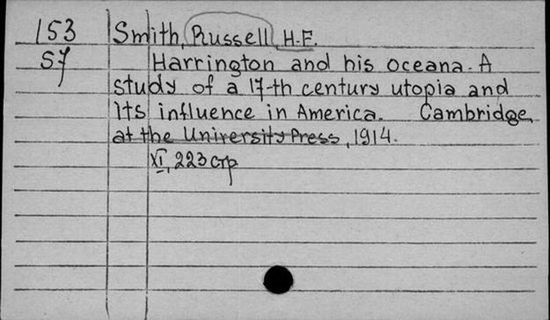 153 Smith, Russell H.F.
S7 Harrington and his oceana. A
study of a 17-th century utopia and
its influence in America. Cambridge,
at the University Press, 1914.
XI, 223 стр